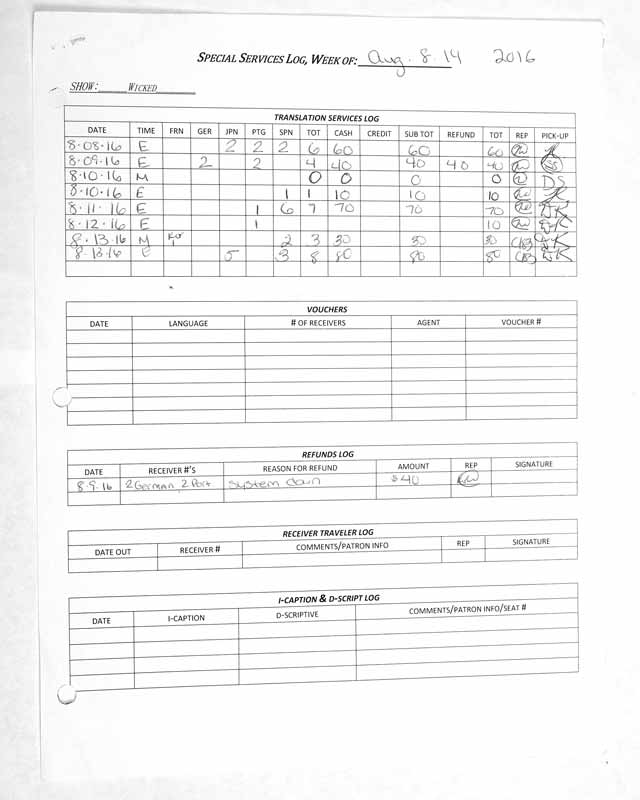 SPECIAL SERVICES LOG, WEEK OF: Aug. 8-14 2016
SHOW: WICKED
TRANSLATION SERVICES LOG
DATE TIME FRN GER JPN PTG SPN TOT CASH CREDIT SUB TOT REFUND TOT REP PICK-UP
8-08-16 E 2 2 2 6 60 60 60
8-09-16 E 2 2 4 40 40 40 40
8-10-16 M 0 0 0 0 DS
8-10-16 E 1 1 10 10 10
8-11-16 E 1 6 7 70 70 70
8-12-16 E 1 10
8-13-16 M 1 2 3 30 30 30
8-13-16 E 5 3 8 80 80 80
VOUCHERS
DATE LANGUAGE # OF RECEIVERS AGENT VOUCHER #
REFUNDS LOG
DATE RECEIVER #'S REASON FOR REFUND AMOUNT REP SIGNATURE
8-9-16 2 German, 2 Port system down $40
RECEIVER TRAVELER LOG
DATE OUT RECEIVER # COMMENTS/PATRON INFO REP SIGNATURE
I-CAPTION & D-SCRIPT LOG
DATE I-CAPTION D-SCRIPTIVE COMMENTS/PATRON INFO/SEAT #